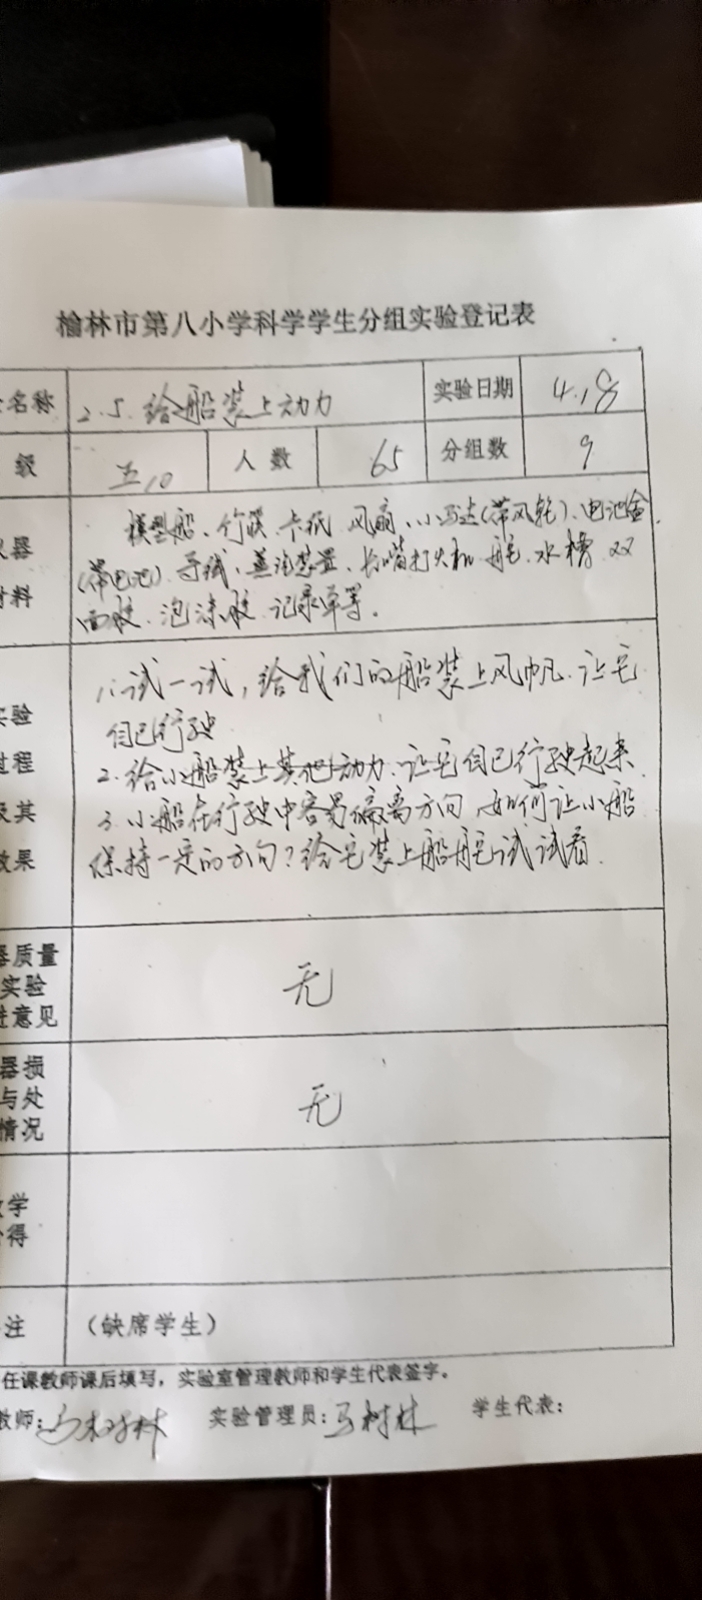 榆林市第八小学科学学生分组实验登记表
名称 2.5.给船装上动力 实验日期 4.18
级 五10 人数 65 分组数 9
器 模型船、竹筷、卡纸、风扇、小马达(带风轮)、电池盒
材料 (带电池)、导线、蒸汽装置、长嘴打火机、舵、水槽、双
面胶、泡沫胶、记录单等.
1.试一试,给我们的船装上风帆.让它
验 自己行驶
过程 2.给小船装上其他动力.让它自己行驶起来.
及其 3.小船在行驶中容易偏离方向,如何让小船
效果 保持一定的方向?给它装上船舵试试看.
器质量
实验 无
进意见
器损
与处 无
情况
学
得
注 (缺席学生)
任课教师课后填写,实验室管理教师和学生代表签字。
教师:马树林 实验管理员:马树林 学生代表: